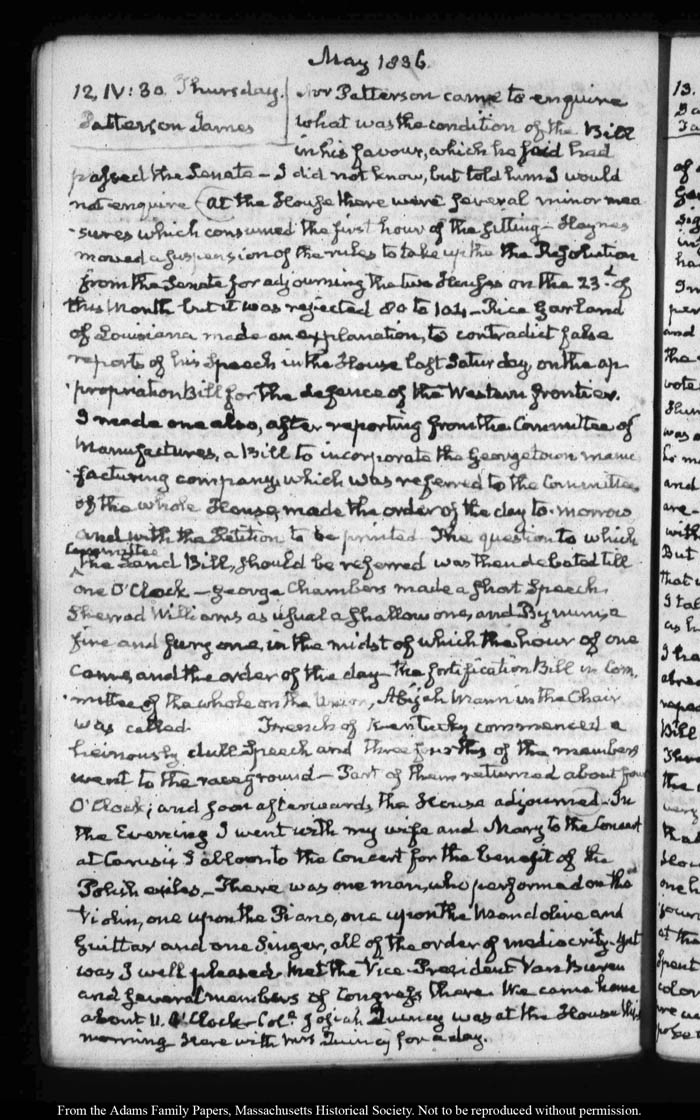 May 1836.
12. IV:30. Thursday.
Patterson James
Mr Patterson came to enquire
what was the condition of the Bill
in his favour, which he said had
passed the Senate – I did not know, but told him I would
not enquire. At the House there were several minor mea
-sures which consumed the first hour of the sitting – Haynes
moved a suspension of the rules to take up the Resolution
from the Senate for adjourning the two Houses on the 23d. of
this Month but it was rejected 80 to 104 – Rice Garland
of Louisiana made an explanation, to contradict false
reports of his Speech in the House last Saturday, on the ap
-propriation Bill for the defence of the Western frontier.
I made one also, after reporting from the Committee of
Manufactures, a Bill to incorporate the Georgetown manu
-facturing company, which was referred to the Committee
of the whole House, made the order of the day to-morrow
and with the Petition to be printed. The question to which
Committee
the Land Bill, should be referred was then debated till
one O'Clock – George Chambers made a short Speech,
Sherrod Williams as usual a shallow one, and Bynum, a
fire and fury one, in the midst of which the hour of one
came, and the order of the day – the fortification Bill in Com.
-mittee of the whole on the Union, Abijah Mann in the Chair
was called. French of Kentucky commenced a
heinously dull Speech and three fourths of the members
went to the raceground – Part of them returned about four
O'Clock; and soon afterwards the House adjourned – In
the Evening I went with my wife and Mary to the Concert
at Carusi's Saloon to the Concert for the benefit of the
Polish exiles – There was one man, who performed on the
Violin, one upon the Piano, one upon the Mandoline and
Guittar and one Singer, all of the order of mediocrity – yet
was I well pleased. Met the Vice-President Van Buren
and several members of Congress there. We came home
about 11. O'Clock – Col. Josiah Quincy was at the House this
morning here with Mrs Quincy for a day.
13.
From the Adams Family Papers, Massachusetts Historical Society. Not to be reproduced without permission.